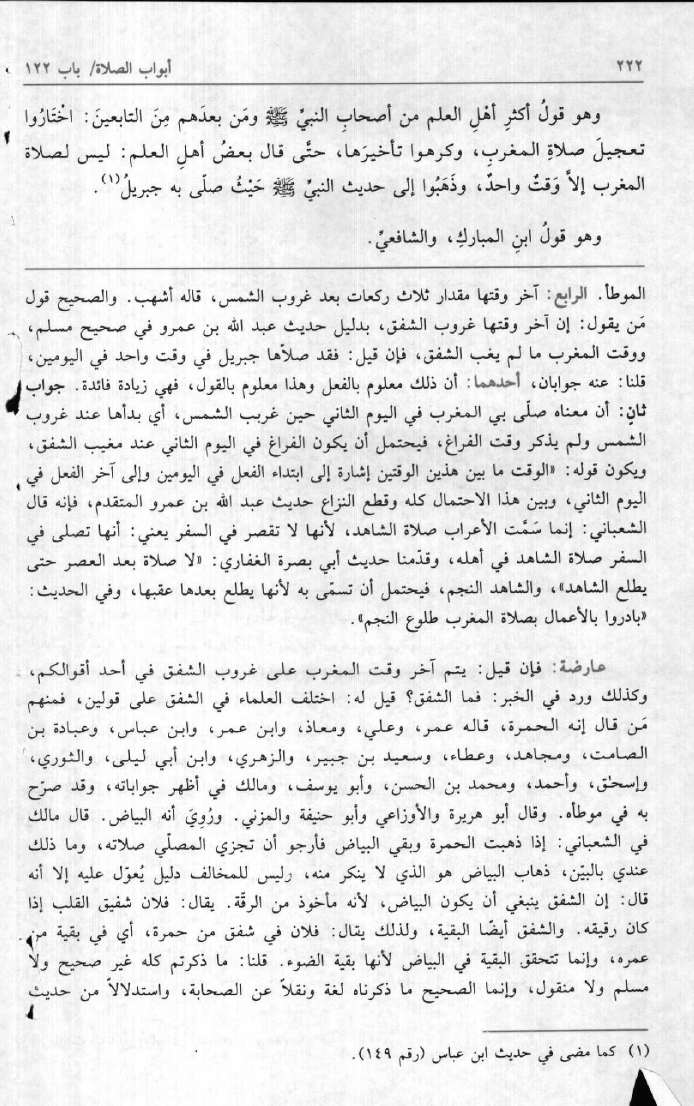 ٢٢٢ أبواب الصلاة/ باب ١٢٢
وهو قولُ أكثرِ أهْلِ العلم من أصحابِ النبيِّ ﷺ ومَن بعدَهم مِنَ التابعينَ: اخْتَارُوا
تعجيلَ صلاةِ المغربِ، وكرهوا تأخيرَها، حتَّى قال بعضُ أهلِ العلم: ليس لصلاة
المغرب إلاَّ وَقتٌ واحدٌ، وذَهَبُوا إلى حديث النبيِّ ﷺ حَيْثُ صلّى به جبريلُ(١).
وهو قولُ ابنِ المباركِ، والشافعيِّ.
الموطأ. الرابع: آخر وقتها مقدار ثلاث ركعات بعد غروب الشمس، قاله أشهب. والصحيح قول
مَن يقول: إن آخر وقتها غروب الشفق، بدليل حديث عبد الله بن عمرو في صحيح مسلم،
ووقت المغرب ما لم يغب الشفق، فإن قيل: فقد صلاّها جبريل في وقت واحد في اليومين،
قلنا: عنه جوابان، أحدهما: أن ذلك معلوم بالفعل وهذا معلوم بالقول، فهي زيادة فائدة. جواب
ثانٍ: أن معناه صلّى بي المغرب في اليوم الثاني حين غربب الشمس، أي بدأها عند غروب
الشمس ولم يذكر وقت الفراغ، فيحتمل أن يكون الفراغ في اليوم الثاني عند مغيب الشفق،
ويكون قوله: «الوقت ما بين هذين الوقتين إشارة إلى ابتداء الفعل في اليومين وإلى آخر الفعل في
اليوم الثاني، وبين هذا الاحتمال كله وقطع النزاع حديث عبد الله بن عمرو المتقدم، فإنه قال
الشعباني: إنما سَمَّت الأعراب صلاة الشاهد، لأنها لا تقصر في السفر يعني: أنها تصلى في
السفر صلاة الشاهد في أهله، وقدّمنا حديث أبي بصرة الغفاري: «لا صلاة بعد العصر حتى
يطلع الشاهد»، والشاهد النجم، فيحتمل أن تسمّى به لأنها يطلع بعدها عقبها، وفي الحديث:
«بادروا بالأعمال بصلاة المغرب طلوع النجم».
عارضة: فإن قيل: يتم آخر وقت المغرب على غروب الشفق في أحد أقوالكم،
وكذلك ورد في الخبر: فما الشفق؟ قيل له: اختلف العلماء في الشفق على قولين، فمنهم
مَن قال إنه الحمرة، قاله عمر، وعلي، ومعاذ، وابن عمر، وابن عباس، وعبادة بن
الصامت، ومجاهد، وعطاء، وسعيد بن جبير، والزهري، وابن أبي ليلى، والثوري،
وإسحٰق، وأحمد، ومحمد بن الحسن، وأبو يوسف، ومالك في أظهر جواباته، وقد صرّح
به في موطأه. وقال أبو هريرة والأوزاعي وأبو حنيفة والمزني. ورُوِيَ أنه البياض. قال مالك
في الشعباني: إذا ذهبت الحمرة وبقي البياض فأرجو أن تجزي المصلّي صلاته، وما ذلك
عندي بالبيّن، ذهاب البياض هو الذي لا ينكر منه، وليس للمخالف دليل يُعوّل عليه إلا أنه
قال: إن الشفق ينبغي أن يكون البياض، لأنه مأخوذ من الرقّة. يقال: فلان شفيق القلب إذا
كان رقيقه. والشفق أيضًا البقية، ولذلك يقال: فلان في شفق من حمرة، أي في بقية من
عمره، وإنما تتحقق البقية في البياض لأنها بقية الضوء. قلنا: ما ذكرتم كله غير صحيح ولا
مسلم ولا منقول، وإنما الصحيح ما ذكرناه لغة ونقلاً عن الصحابة، واستدلالاً من حديث
(١) كما مضى في حديث ابن عباس (رقم ١٤٩).